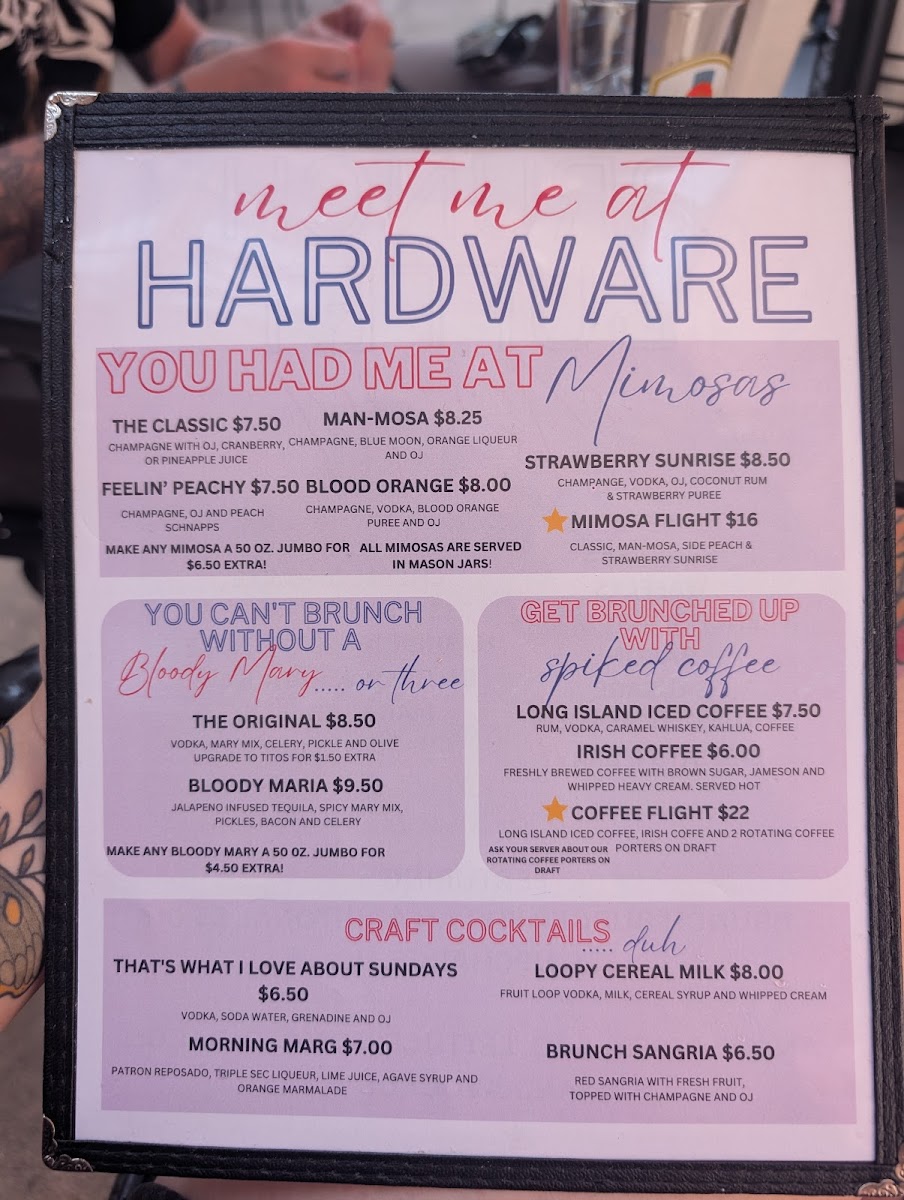 meet me at
HARDWARE
YOU HAD ME AT Mimosas
THE CLASSIC $7.50
CHAMPAGNE WITH OJ, CRANBERRY,
OR PINEAPPLE JUICE
MAN-MOSA $8.25
CHAMPAGNE, BLUE MOON, ORANGE LIQUEUR
AND OJ
FEELIN' PEACHY $7.50
CHAMPAGNE, OJ AND PEACH
SCHNAPPS
BLOOD ORANGE $8.00
CHAMPAGNE, VODKA, BLOOD ORANGE
PUREE AND OJ
STRAWBERRY SUNRISE $8.50
CHAMPANGE, VODKA, OJ, COCONUT RUM
& STRAWBERRY PUREE
MIMOSA FLIGHT $16
CLASSIC, MAN-MOSA, SIDE PEACH &
STRAWBERRY SUNRISE
MAKE ANY MIMOSA A 50 OZ. JUMBO FOR
$6.50 EXTRA!
ALL MIMOSAS ARE SERVED
IN MASON JARS!
YOU CAN'T BRUNCH
WITHOUT A
Bloody Mary..... or three
THE ORIGINAL $8.50
VODKA, MARY MIX, CELERY, PICKLE AND OLIVE
UPGRADE TO TITOS FOR $1.50 EXTRA
BLOODY MARIA $9.50
JALAPENO INFUSED TEQUILA, SPICY MARY MIX,
PICKLES, BACON AND CELERY
MAKE ANY BLOODY MARY A 50 OZ. JUMBO FOR
$4.50 EXTRA!
GET BRUNCHED UP
WITH
spiked coffee
LONG ISLAND ICED COFFEE $7.50
RUM, VODKA, CARAMEL WHISKEY, KAHLUA, COFFEE
IRISH COFFEE $6.00
FRESHLY BREWED COFFEE WITH BROWN SUGAR, JAMESON AND
WHIPPED HEAVY CREAM. SERVED HOT
COFFEE FLIGHT $22
LONG ISLAND ICED COFFEE, IRISH COFFE AND 2 ROTATING COFFEE
PORTERS ON DRAFT
ASK YOUR SERVER ABOUT OUR
ROTATING COFFEE PORTERS ON
DRAFT
CRAFT COCKTAILS
..... duh
THAT'S WHAT I LOVE ABOUT SUNDAYS
$6.50
VODKA, SODA WATER, GRENADINE AND OJ
LOOPY CEREAL MILK $8.00
FRUIT LOOP VODKA, MILK, CEREAL SYRUP AND WHIPPED CREAM
MORNING MARG $7.00
PATRON REPOSADO, TRIPLE SEC LIQUEUR, LIME JUICE, AGAVE SYRUP AND
ORANGE MARMALADE
BRUNCH SANGRIA $6.50
RED SANGRIA WITH FRESH FRUIT,
TOPPED WITH CHAMPAGNE AND OJ